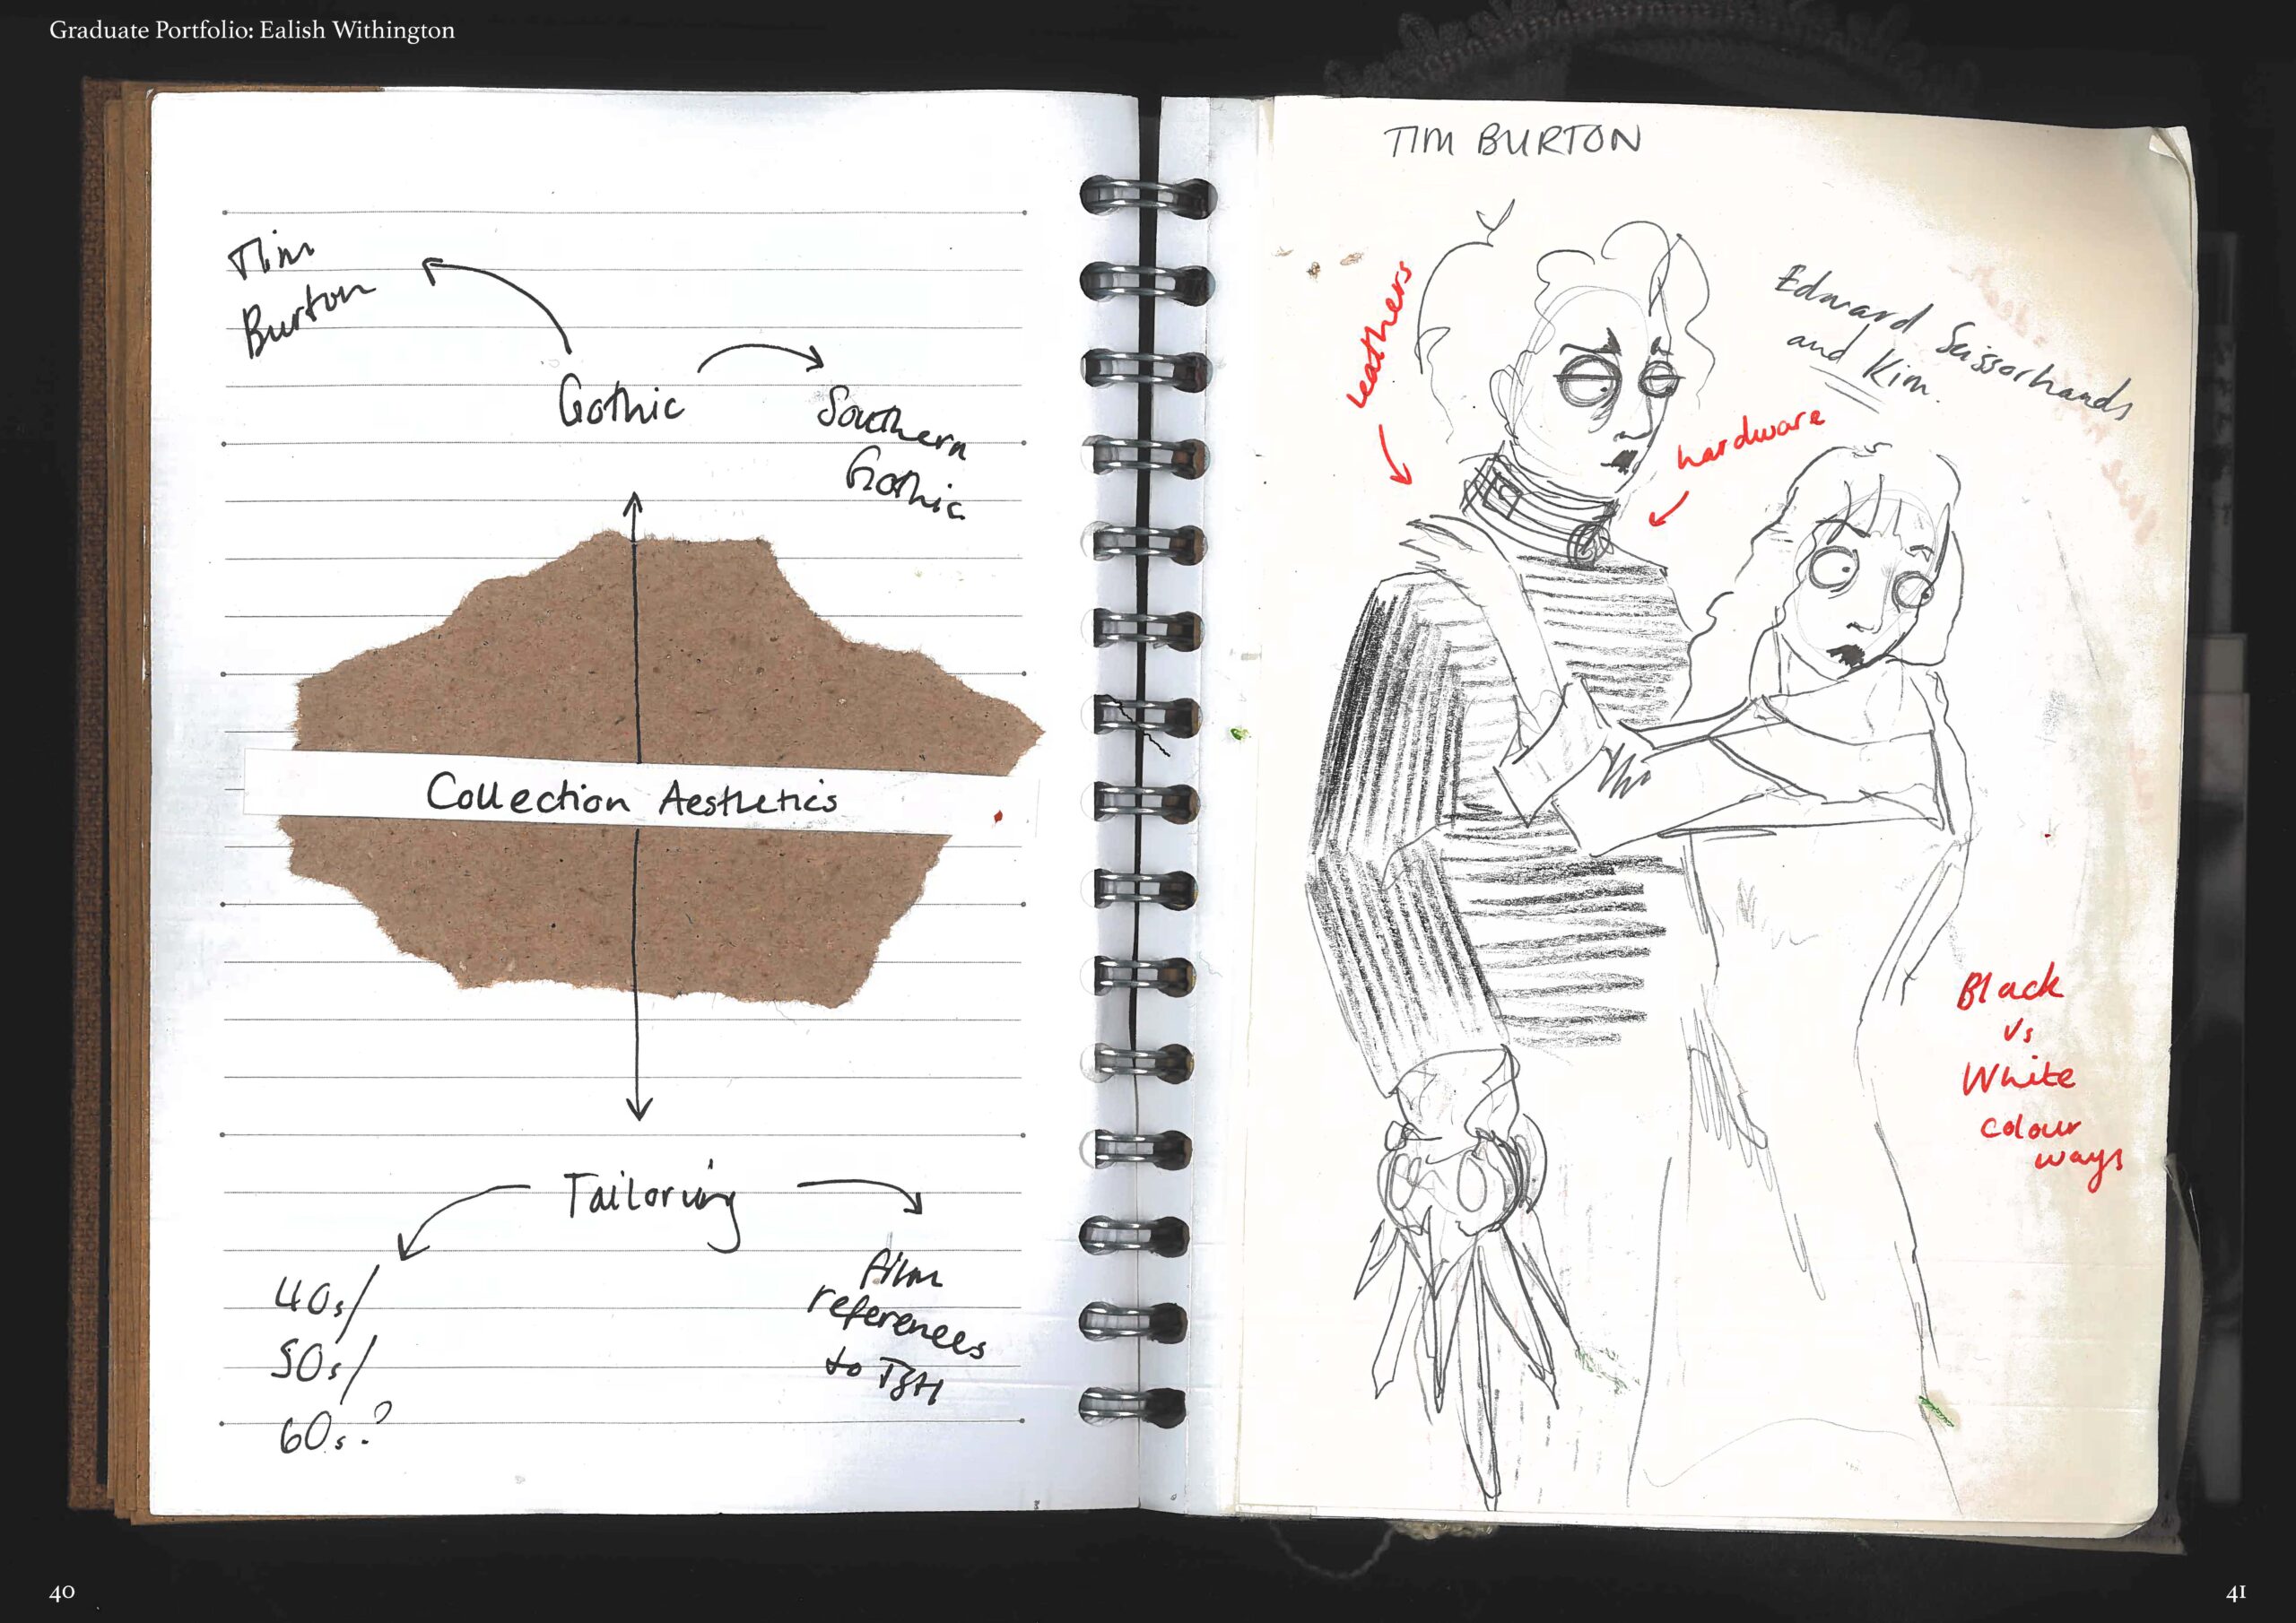 Graduate Portfolio: Ealish Withington
Tim
Burton
Gothic
Southern
Gothic
Collection Aesthetics
Tailoring
40s/
50s/
60s?
film
references
to TSH
TIM BURTON
Edward Scissorhands
and Kim.
leathers
hardware
Black
Vs
White
colour
ways
40
41